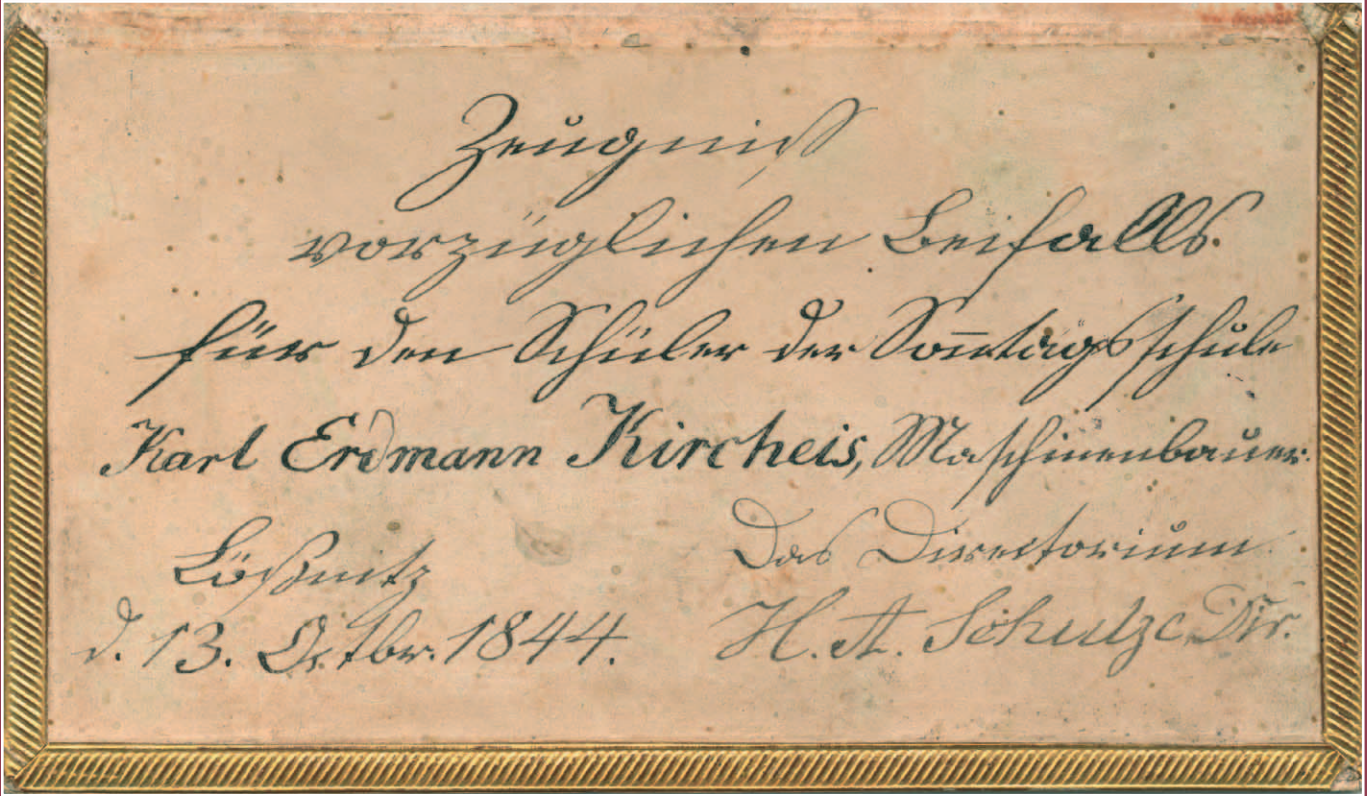 Zeugniß
vorzüglichen Beifalls
für den Schüler der Son̅tagsschule
Karl Erdmann Kircheis, Maschinenbauer.
Lößnitz
Das Directorium
d. 13. Octbr. 1844.
H. A. Schulze Dir.